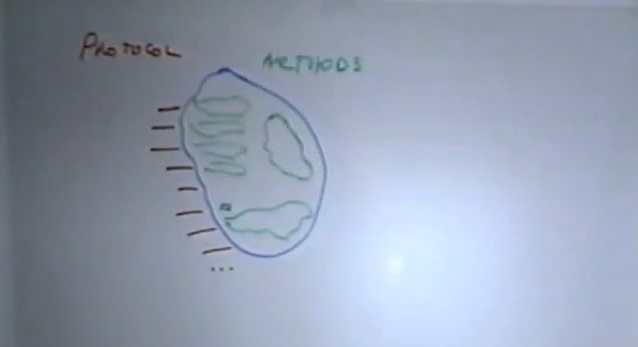 PROTOCOL
METHODS
...